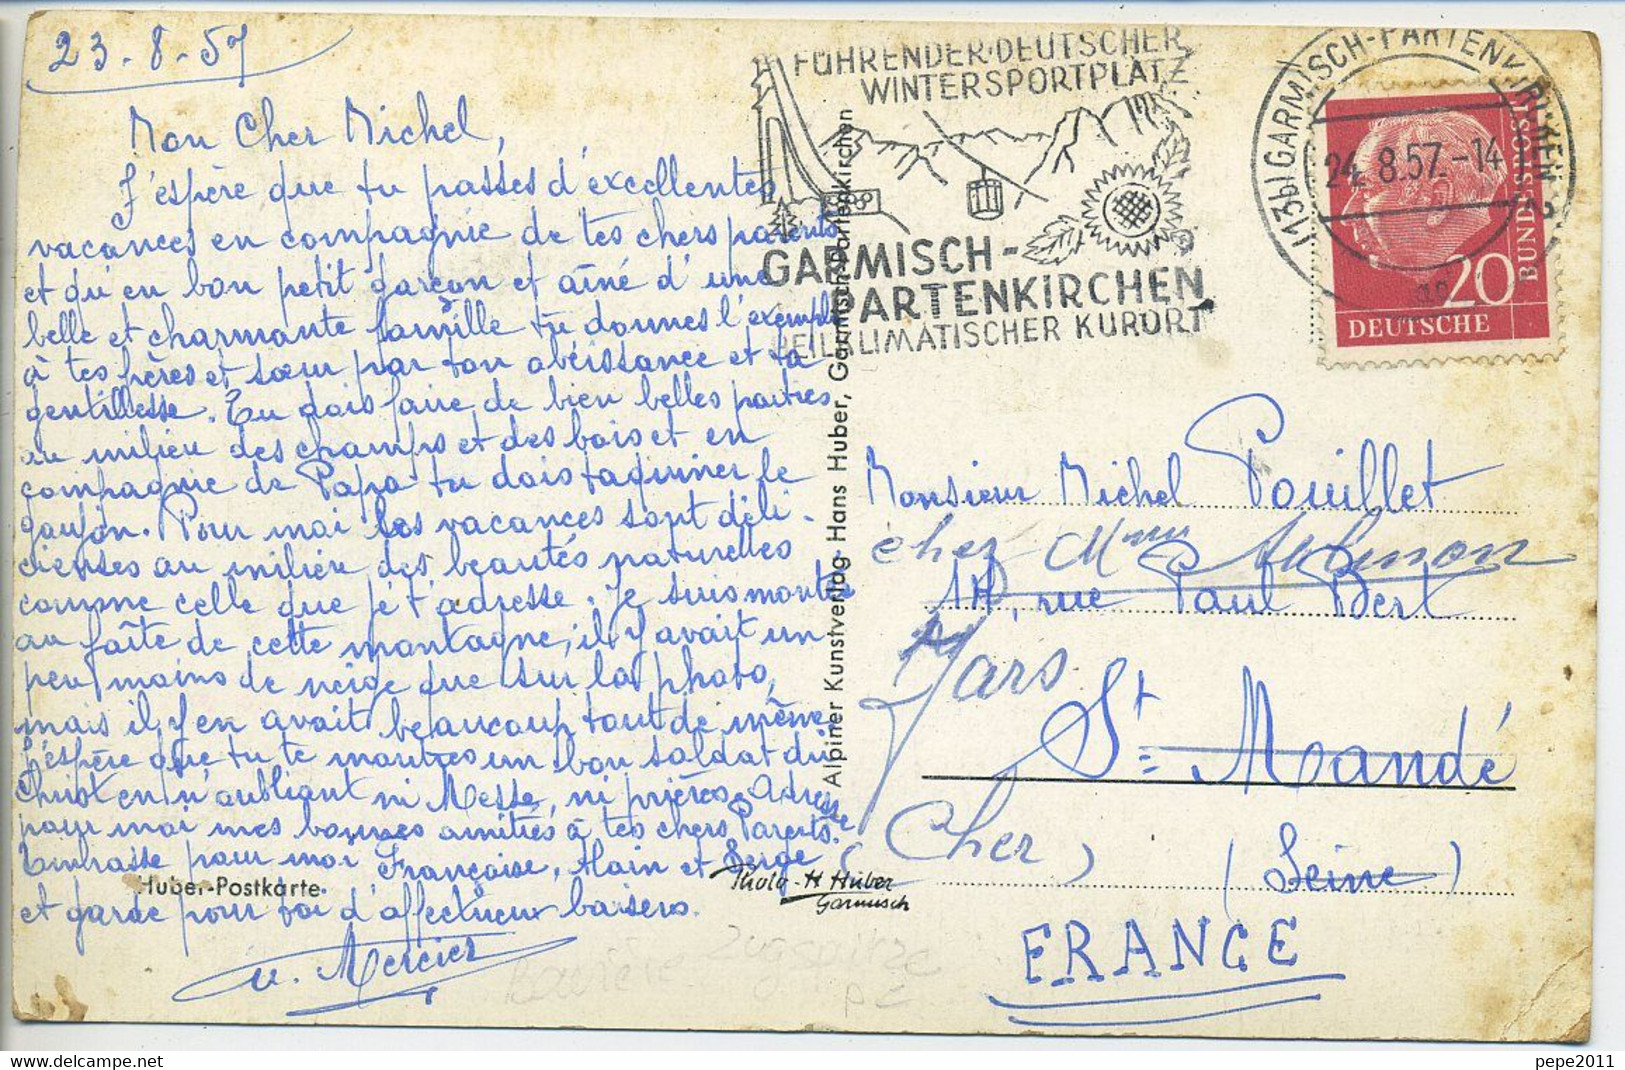 23-8-57
Mon Cher Michel,
J'espère que tu passes d'excellentes
vacances en compagnie de tes chers parents
et qu'en bon petit garçon et aîné d'une
belle et charmante famille tu donnes l'exemple
à tes frères et sœur par ton obéissance et ta
gentillesse. Tu dois faire de bien belles parties
au milieu des champs et des bois et en
compagnie de Papa tu dois taquiner le
goujon. Pour moi les vacances sont déli-
cieuses au milieu des beautés naturelles
comme celle que je t'adresse. Je suis monté
au faîte de cette montagne, il y avait un
peu moins de neige que sur la photo,
mais il y en avait beaucoup tout de même.
J'espère que tu te montres un bon soldat du
Christ en n'oubliant ni Messe, ni prières. Adresse
pour moi mes bonnes amitiés à tes chers Parents.
Embrasse pour moi Françoise, Alain et Serge
et garde pour toi d'affectueux baisers.
Mercier
Huber-Postkarte
Photo-H Huber
Garmisch
Bavière Zugspitze
PC
Alpiner Kunstverlag Hans Huber, Garmisch-Partenkirchen
FÜHRENDER·DEUTSCHER
WINTERSPORTPLATZ
GARMISCH-
PARTENKIRCHEN
HEILKLIMATISCHER KURORT
(13b) GARMISCH-PARTENKIRCHEN 2
24.8.57.-14
DEUTSCHE
BUNDESPOST
20
Monsieur Michel Pouillet
chez Mme
14, rue Paul Bert
Jars
St Mandé
(Cher)
(Seine)
FRANCE
delcampe.net
pepe2011